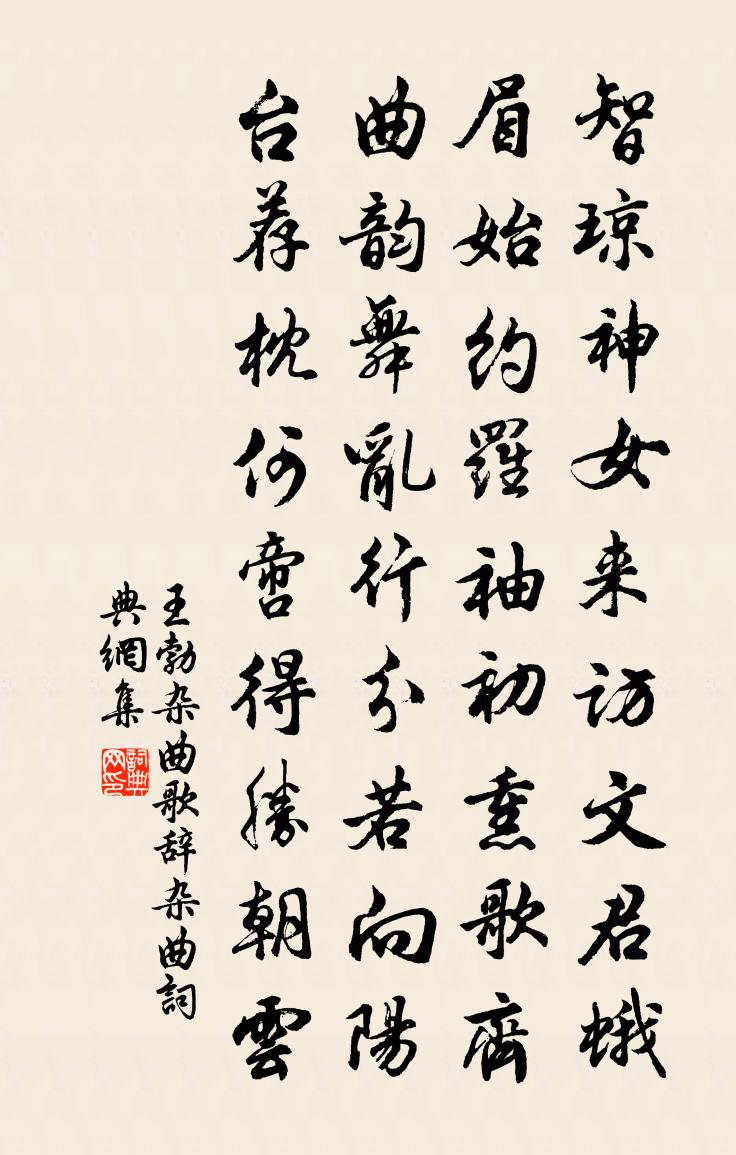 智琼神女来访文君蛾
眉始约羅袖初熏歌齊
曲韵舞亂行分若向陽
台荐枕何啻得勝朝雲
王勃杂曲歌辞杂曲詞
典網集
詞典
网印